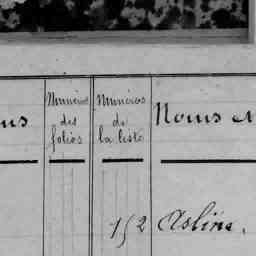 us
Numéros des folios
Numéros de la liste
Noms et
152 Asline,